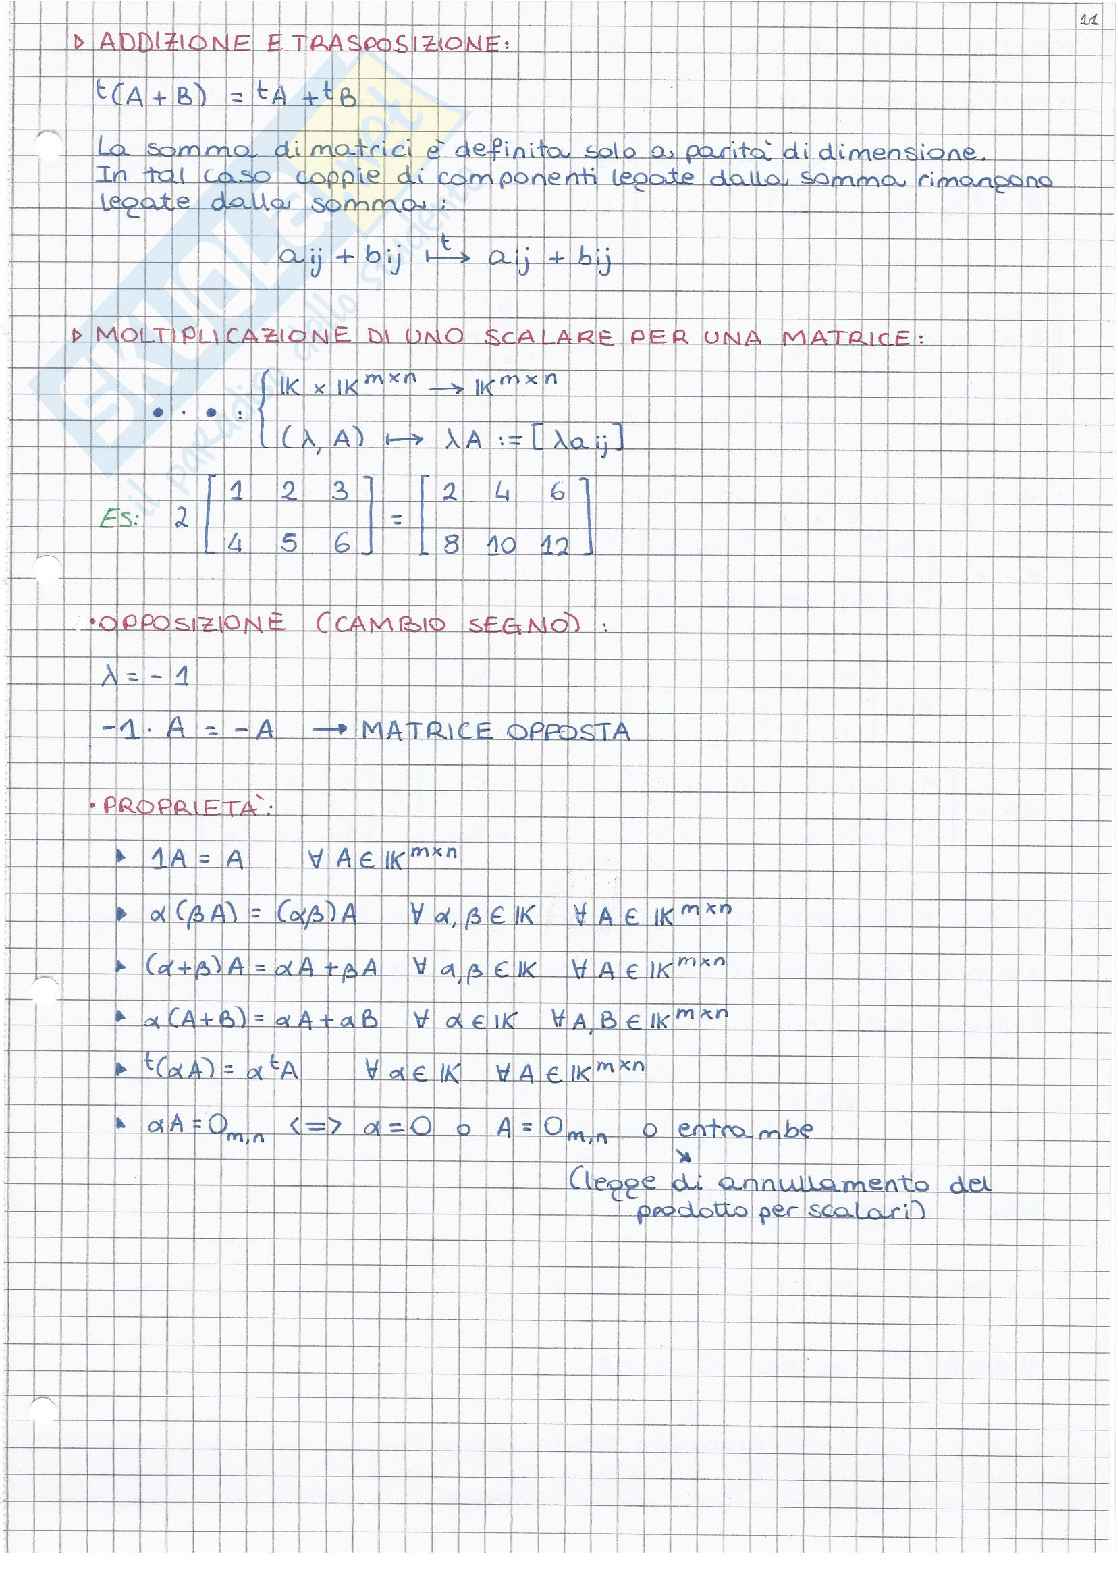 11
▷ ADDIZIONE E TRASPOSIZIONE:
ᵗ(A + B) = ᵗA + ᵗB
La somma di matrici è definita solo a parità di dimensione.
In tal caso coppie di componenti legate dalla somma rimangono
legate dalla somma:
aij + bij ⟼ᵗ aij + bij
▷ MOLTIPLICAZIONE DI UNO SCALARE PER UNA MATRICE:
• · • : { IK × IK^m×n → IK^m×n
(λ, A) ⟼ λA := [λaij]
ES: 2 [1 2 3 = [2 4 6
4 5 6] 8 10 12]
• OPPOSIZIONE (CAMBIO SEGNO):
λ = - 1
-1 · A = - A → MATRICE OPPOSTA
• PROPRIETÀ:
▸ 1A = A ∀ A ∈ IK^m×n
▸ α(βA) = (αβ)A ∀ α, β ∈ IK ∀ A ∈ IK^m×n
▸ (α+β)A = αA + βA ∀ α, β ∈ IK ∀ A ∈ IK^m×n
▸ α(A+B) = αA + αB ∀ α ∈ IK ∀ A, B ∈ IK^m×n
▸ ᵗ(αA) = αᵗA ∀ α ∈ IK ∀ A ∈ IK^m×n
▸ αA = Om,n <=> α = O o A = Om,n o entrambe
(legge di annullamento del
prodotto per scalari)